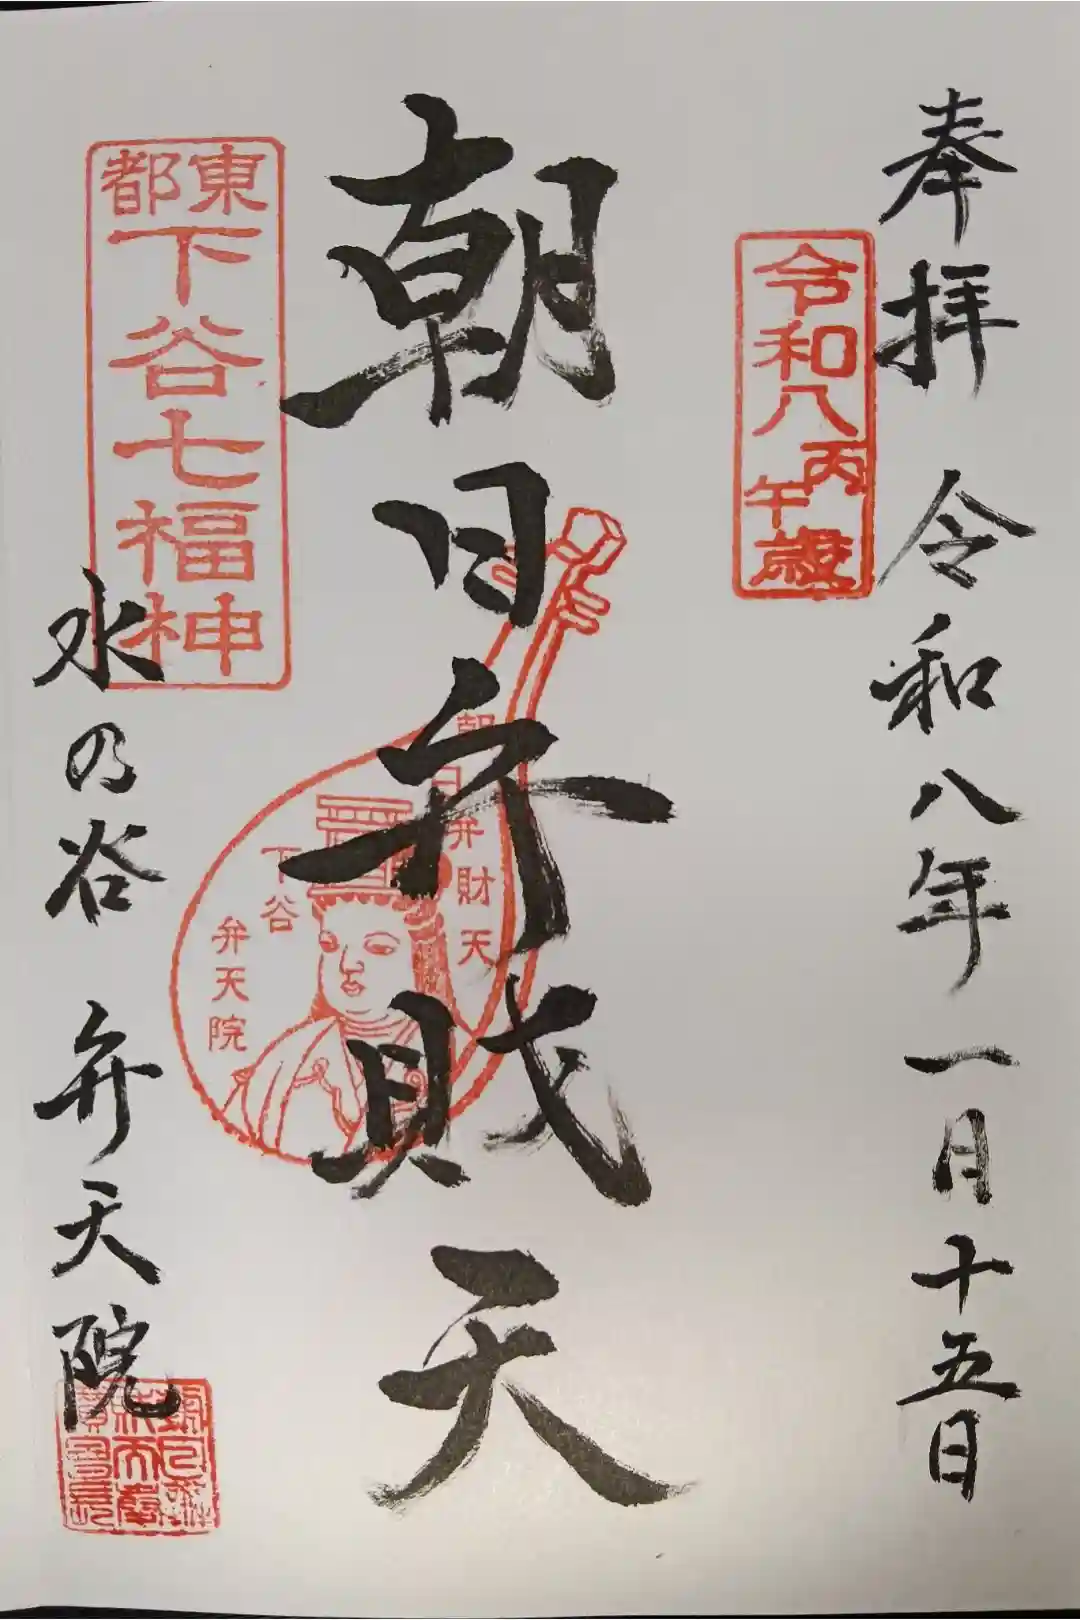 奉拝 令和八年一月十五日
令和八丙午歳
朝日弁財天
朝日弁財天
下谷
弁天院
東都
下谷七福神
水の谷 弁天院